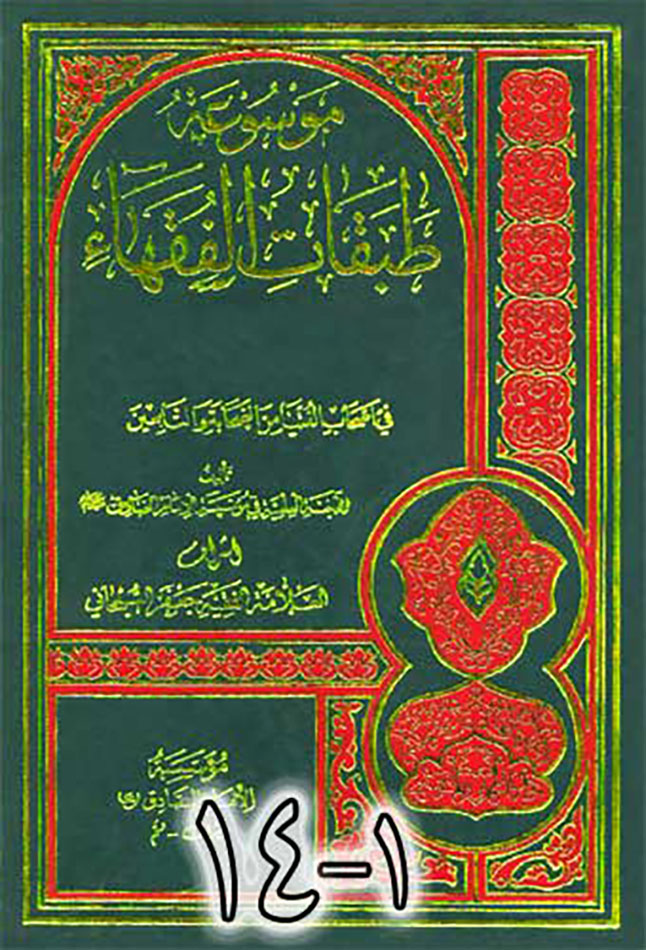 مَوْسُوعَةُ
طَبَقَاتِ الفُقَهَاءِ
في أصحاب الفتيا من الصحابة والتابعين
تأليف
اللجنة العلمية في مؤسسة الإمام الصادق
اشراف
العلامة الفقيه جعفر السبحاني
مُؤسَسَةُ
الإمام الصادق (ع)
قم
١-١٤